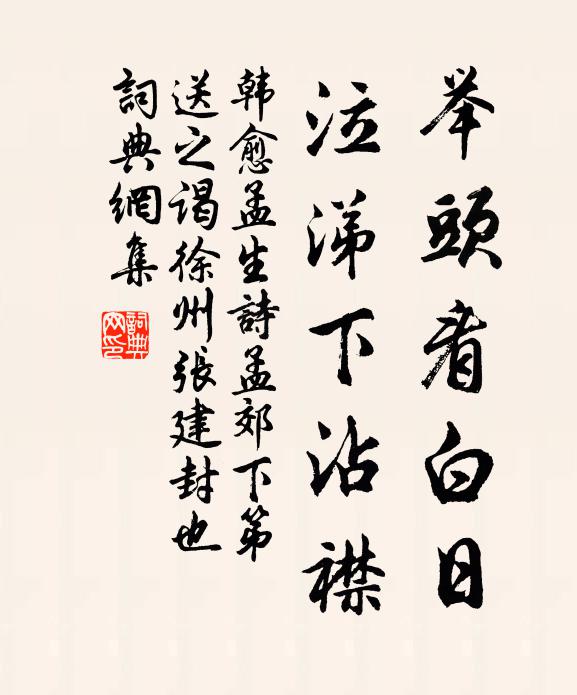 举頭看白日
泣涕下沾襟
韩愈孟生詩孟郊下第
送之谒徐州張建封也
詞典網集
詞典
网印